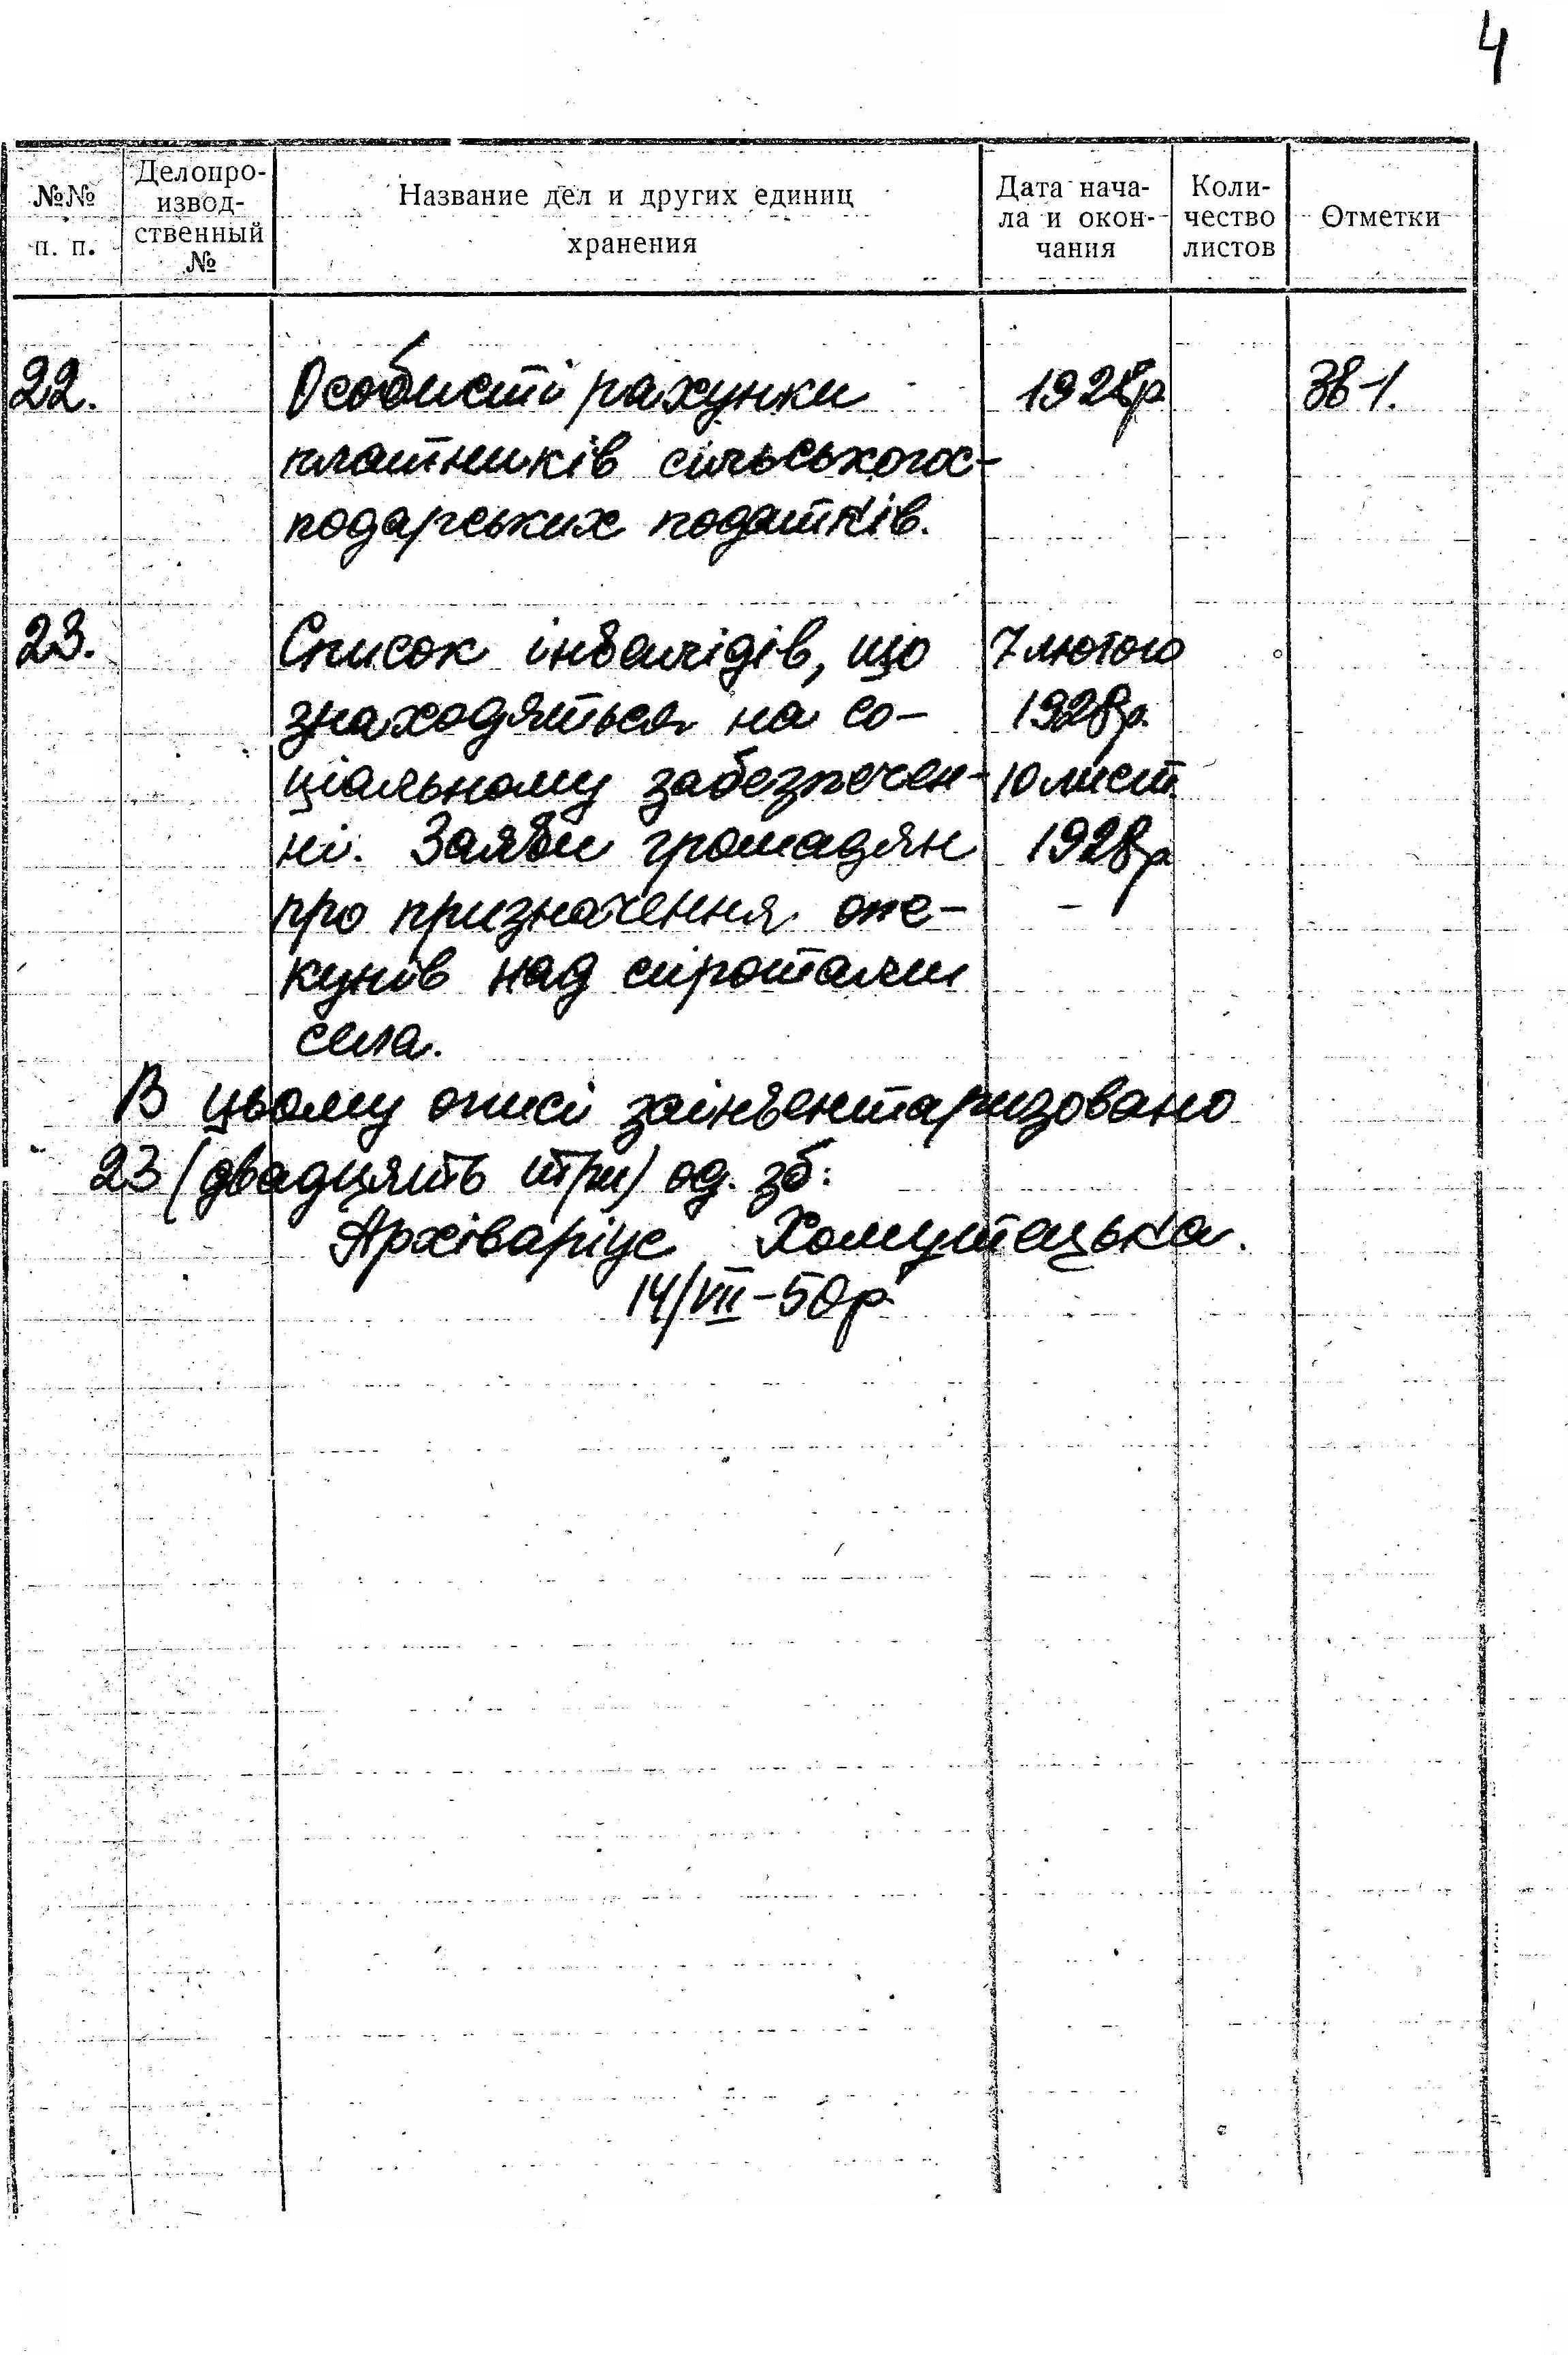 4
№№ п. п.
Делопро-
извод-
ственный
№
Название дел и других единиц
хранения
Дата нача-
ла и окон-
чания
Коли-
чество
листов
Отметки
22. Особисті рахунки 1928р 38-1.
платників сільськогос-
подарських податків.
23. Список інвалідів, що 7 лютого
знаходяться на со- 1928р.
ціальному забезпечен- 10 лист.
ні. Заяви громадян 1928р
про призначення опе- -
кунів над сиротами
села.
В цьому описі заінвентаризовано
23 (двадцять три) од. зб:
Архіваріус Хомутецька.
14/VII-50р.